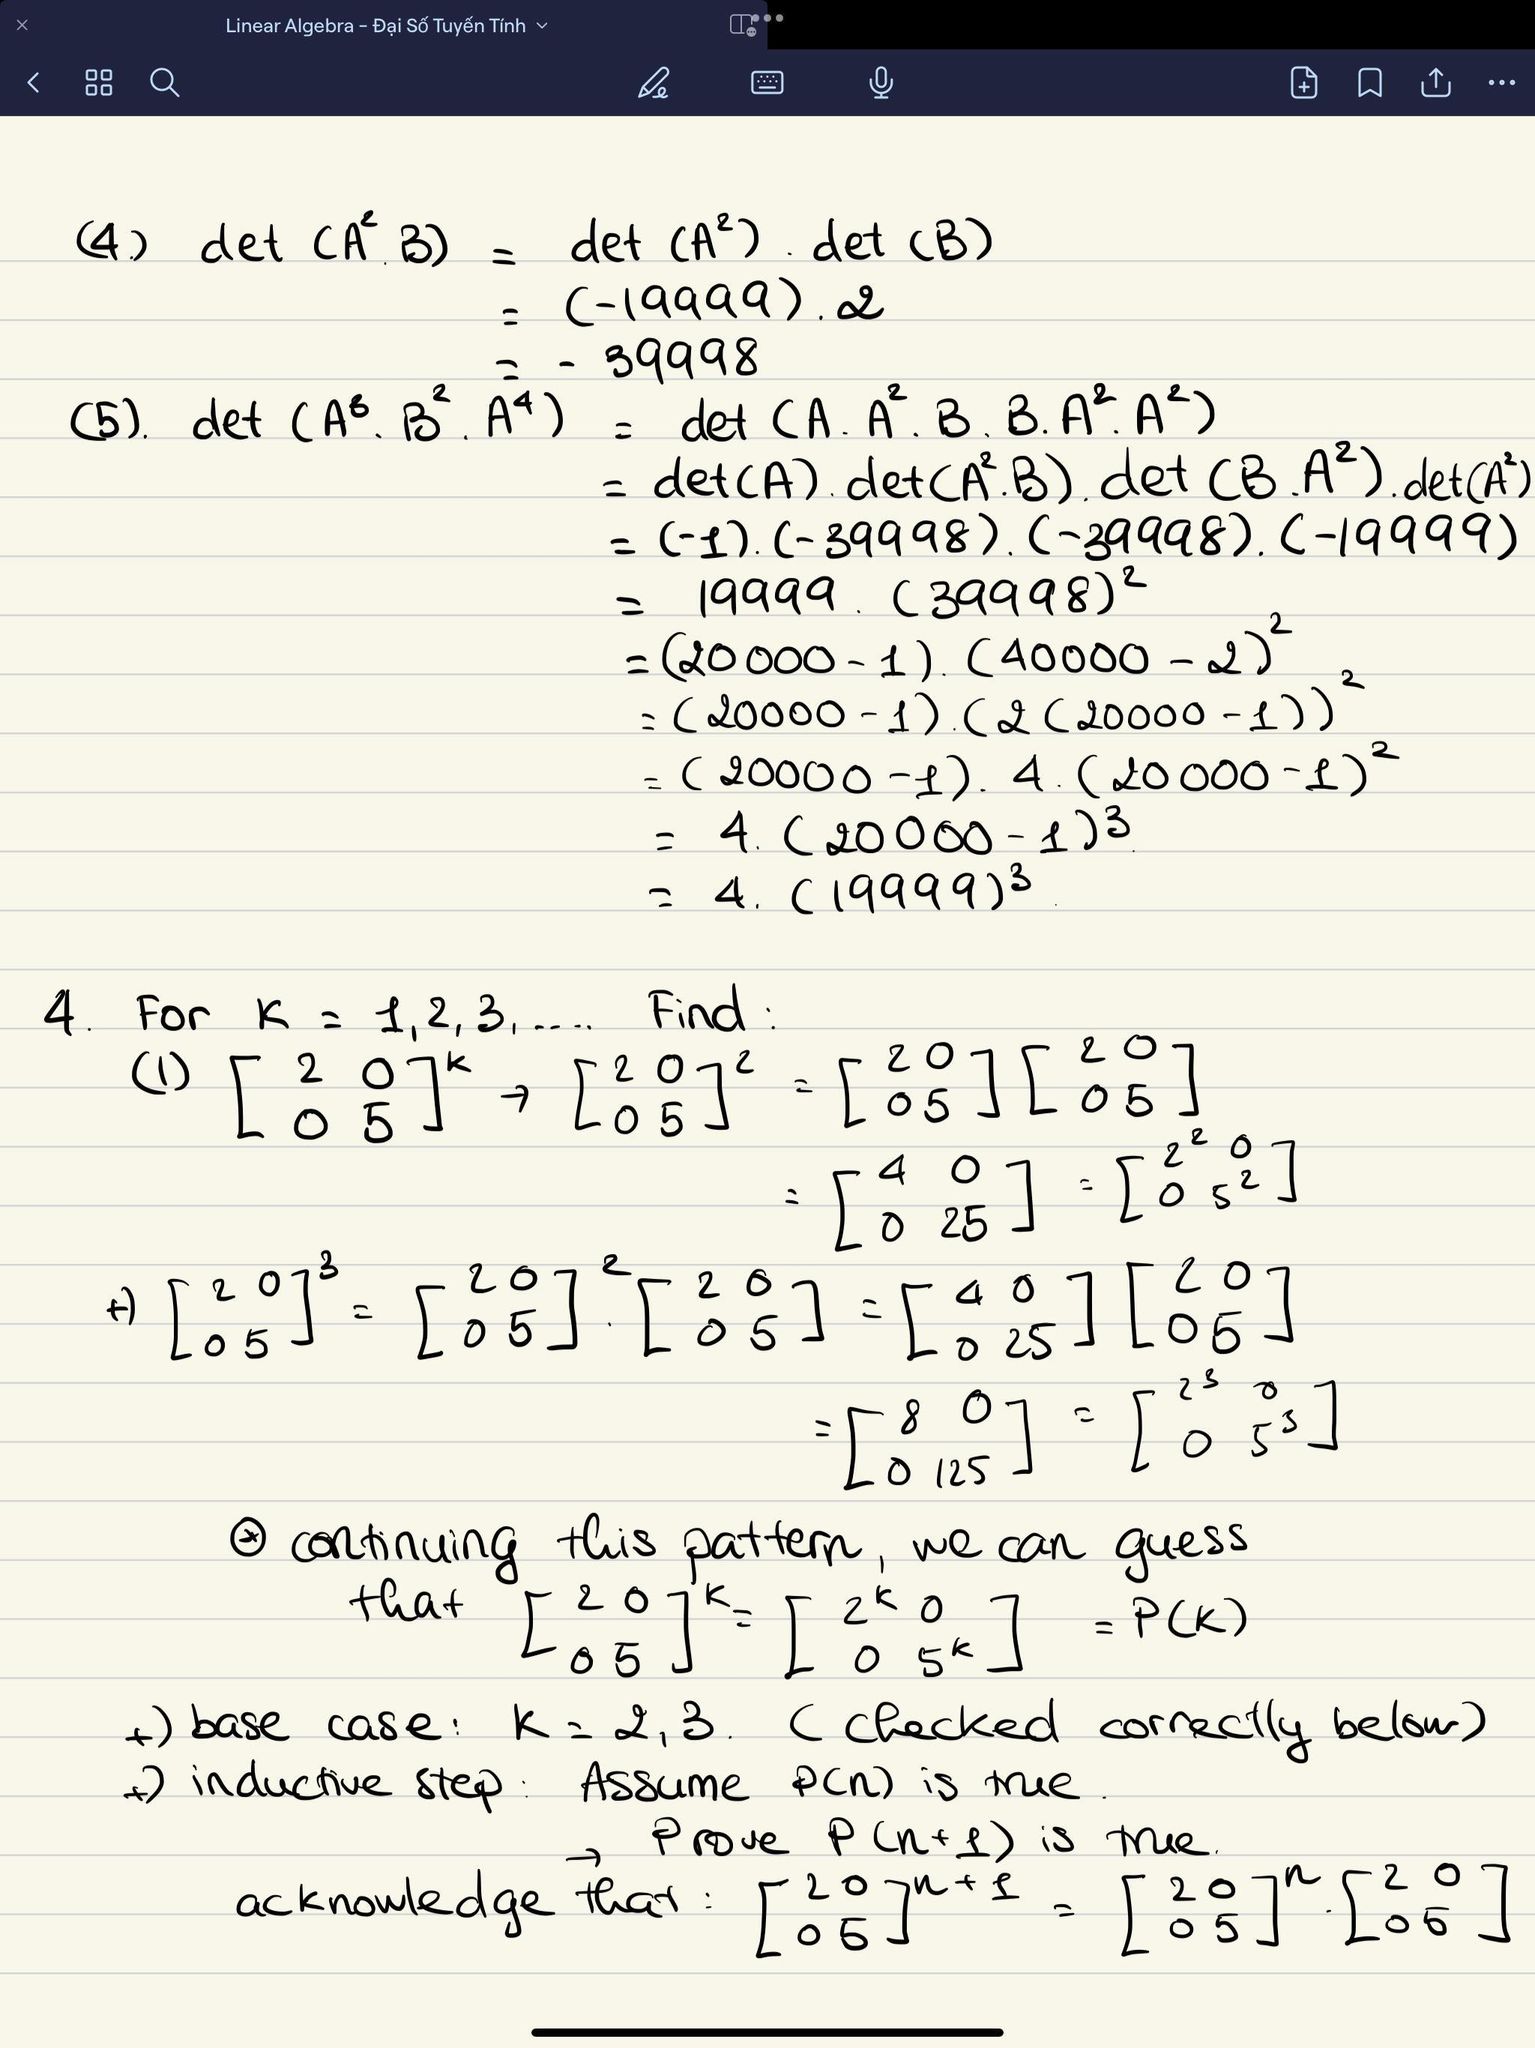 Linear Algebra - Đại Số Tuyến Tính
(4.) det (A². B) = det (A²) . det (B)
= (-19999) . 2
= - 39998
(5). det (A³. B². A⁴) = det (A. A². B. B. A². A²)
= det(A). det(A².B). det (B.A²). det(A²)
= (-1). (-39998). (-39998). (-19999)
= 19999 . (39998)²
= (20000 - 1). (40000 - 2)²
= (20000 - 1). (2 (20000 - 1))²
= (20000 - 1). 4. (20000 - 1)²
= 4. (20000 - 1)³.
= 4. (19999)³
4. For K = 1, 2, 3, ..... Find :
(1) [2 0; 0 5]ᵏ → [2 0; 0 5]² = [2 0; 0 5] [2 0; 0 5]
= [4 0; 0 25] = [2² 0; 0 5²]
+) [2 0; 0 5]³ = [2 0; 0 5]² . [2 0; 0 5] = [4 0; 0 25] [2 0; 0 5]
= [8 0; 0 125] = [2³ 0; 0 5³]
⊛ continuing this pattern, we can guess
that [2 0; 0 5]ᴷ = [2ᴷ 0; 0 5ᴷ] = P(K)
+) base case: K = 2, 3. (checked correctly below)
+) inductive step : Assume P(n) is true.
→ Prove P(n+1) is true.
acknowledge that : [2 0; 0 5]ⁿ⁺¹ = [2 0; 0 5]ⁿ . [2 0; 0 5]